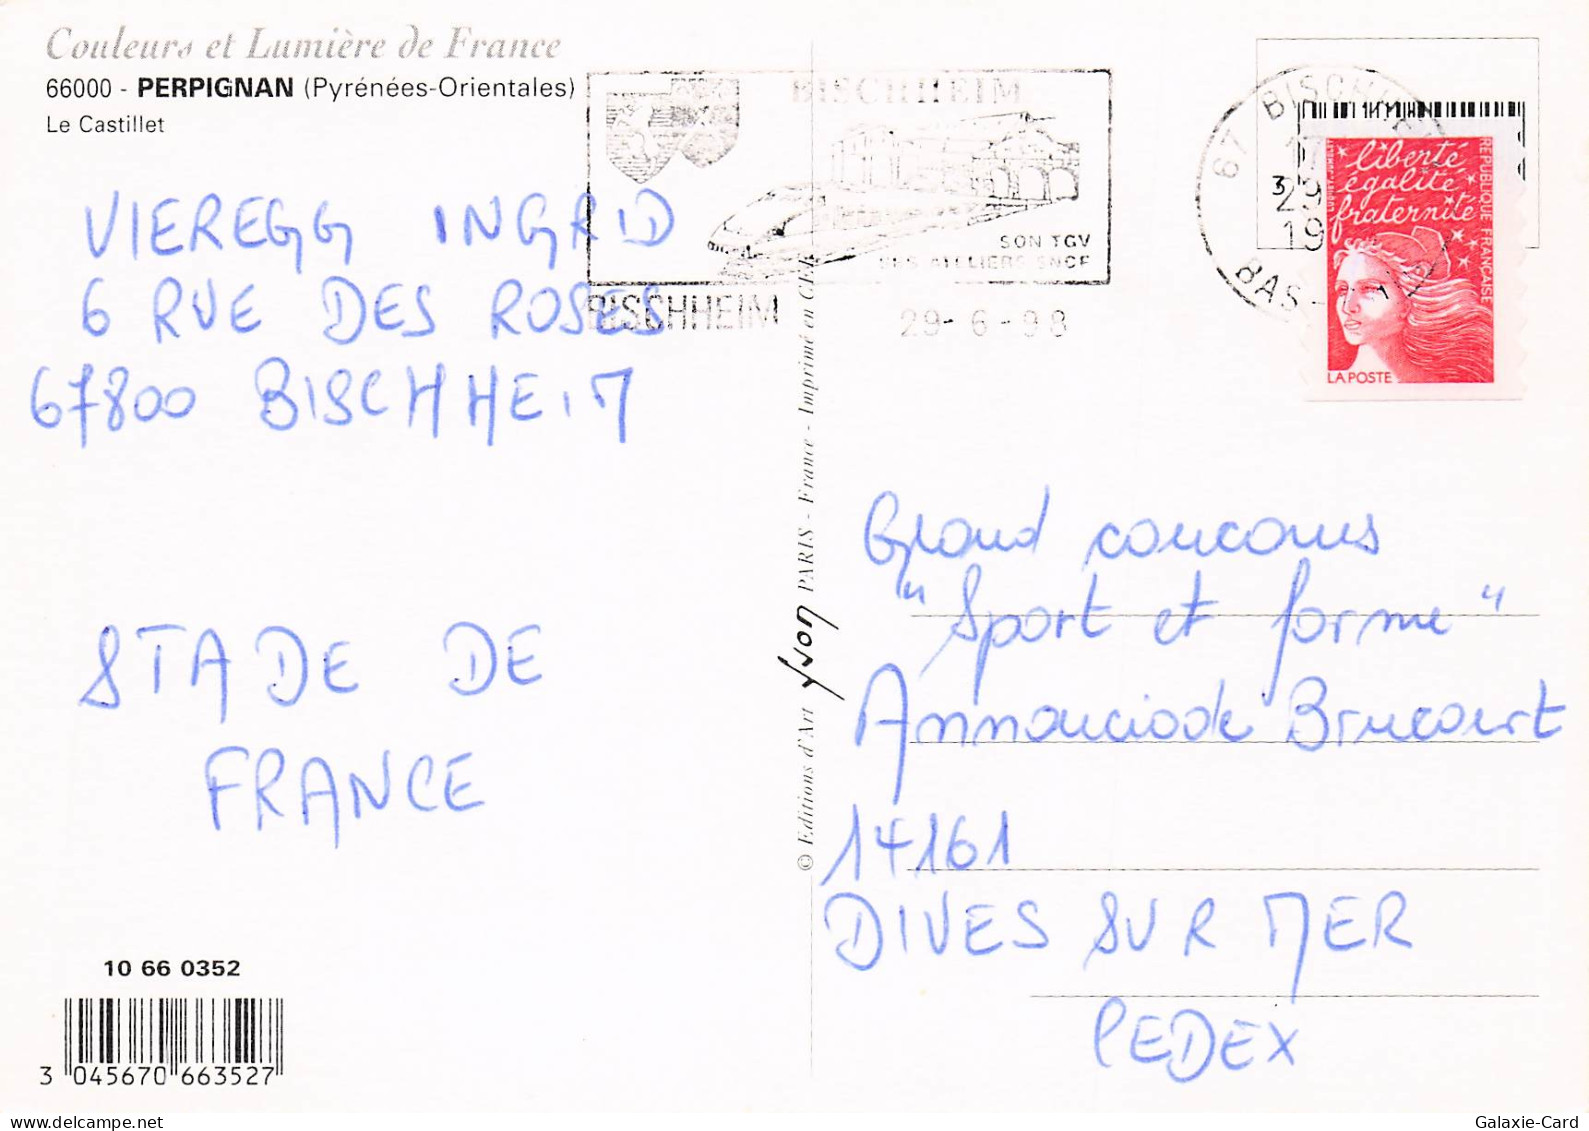 Couleurs et Lumière de France
66000 - PERPIGNAN (Pyrénées-Orientales)
Le Castillet
BISCHHEIM
SON TGV
SES ATELIERS SNCF
BISCHHEIM
29-6-98
67 BISCHHEIM
17
29
19
BAS-
3
liberté
égalité
fraternité
RÉPUBLIQUE FRANÇAISE
LA POSTE
VIEREGG INGRID
6 RUE DES ROSES
67800 BISCHHEIM
STADE DE
FRANCE
© Editions d'Art yvon PARIS - France - Imprimé en CEE
Grand concours
"Sport et forme"
Annonciade Brucourt
14161
DIVES SUR MER
CEDEX
10 66 0352
3 045670 663527
Galaxie-Card